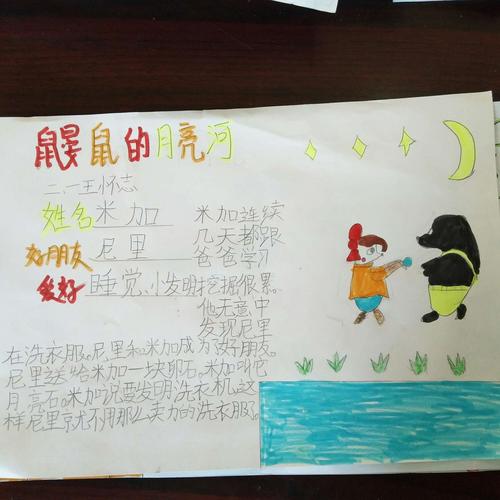 鼹鼠的月亮河
二、一王怀志
姓名米加
好朋友尼里
爱好睡觉、小发明
米加连续
几天都跟
爸爸学习
挖掘很累。
他无意中
发现尼里
在洗衣服。尼里和米加成为好朋友。
尼里送给米加一块卵石。米加叫它
月亮石。米加说要发明洗衣机。这
样尼里就不用那么费力的洗衣服了。